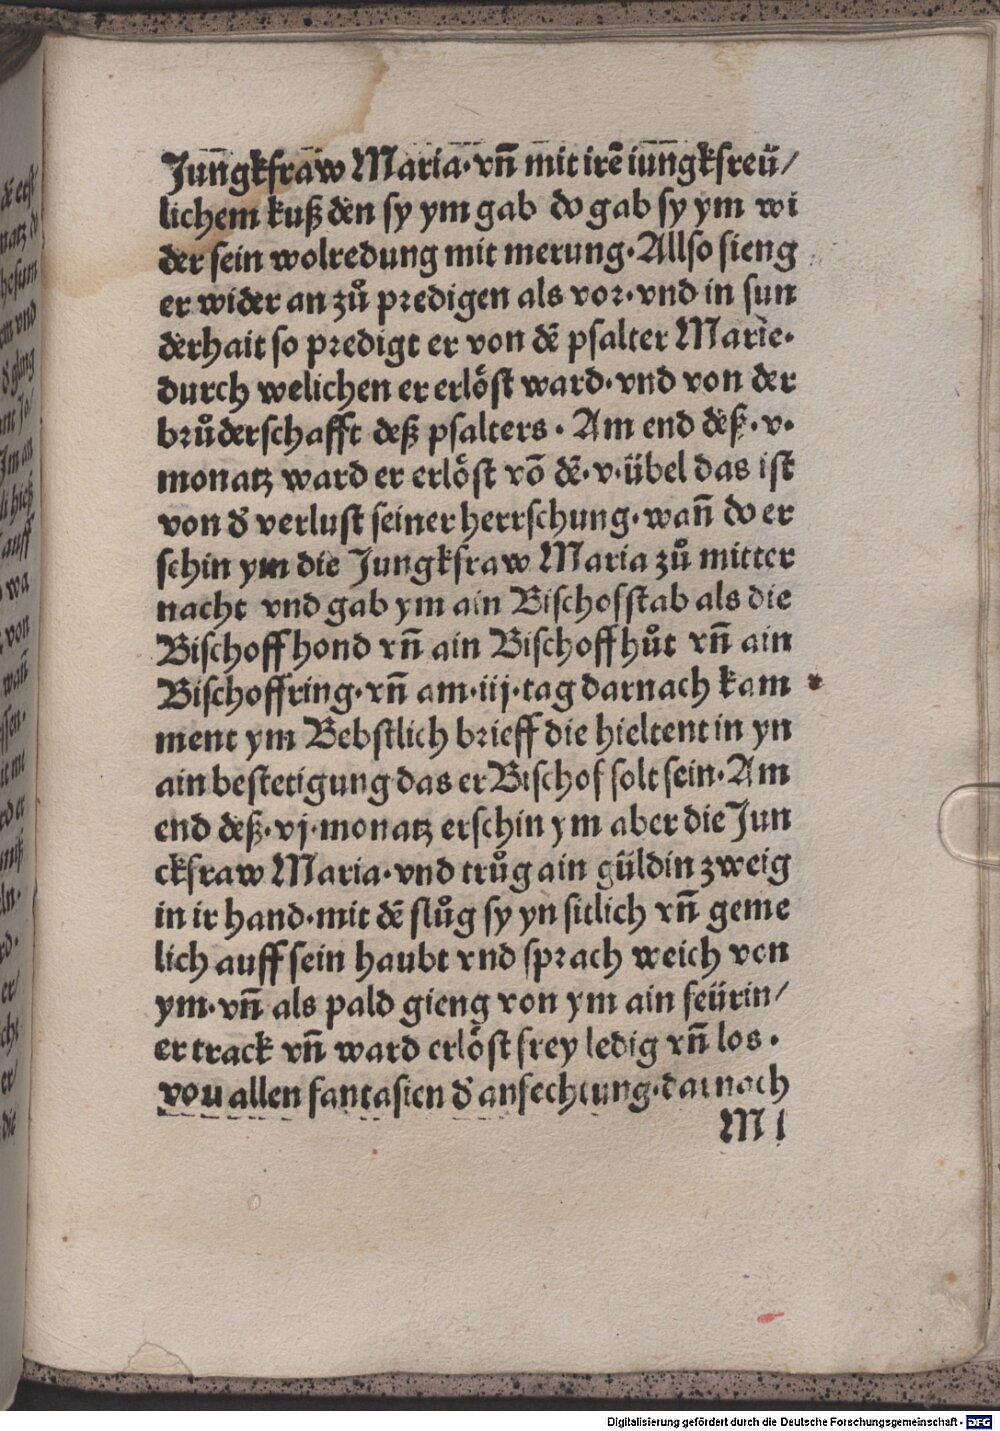 Jungkfraw Maria· vn̄ mit irē iungkfreü/
lichem kuß den sy ym gab do gab sy ym wi
der sein wolredung mit merung· Allso fieng
er wider an zů predigen als vor· vnd in sun
derhait so predigt er von dē psalter Marie·
durch welichen er erlöst ward· vnd von der
brůderschafft deß psalters · Am end deß · v·
monatz ward er erlöst vō dē· v· übel das ist
von d' verlust seiner herrschung· wan̄ do er
schin ym die Jungkfraw Maria zů mitter
nacht vnd gab ym ain Bischofstab als die
Bischoff hond vn̄ ain Bischoff hůt vn̄ ain
Bischoffring· vn̄ am· iij· tag darnach kam
ment ym Bebstlich brieff die hieltent in yn
ain bestetigung das er Bischof solt sein· Am
end deß· vj· monatz erschin ym aber die Jun
ckfraw Maria· vnd trůg ain güldin zweig
in ir hand· mit dē slůg sy yn sitlich vn̄ geme
lich auff sein haubt vnd sprach weich von
ym· vn̄ als pald gieng von ym ain feürin/
er track vn̄ ward erlöst frey ledig vn̄ los ·
vou allen fantasien d' anfechtung· darnach
M l
Digitalisierung gefördert durch die Deutsche Forschungsgemeinschaft - DFG